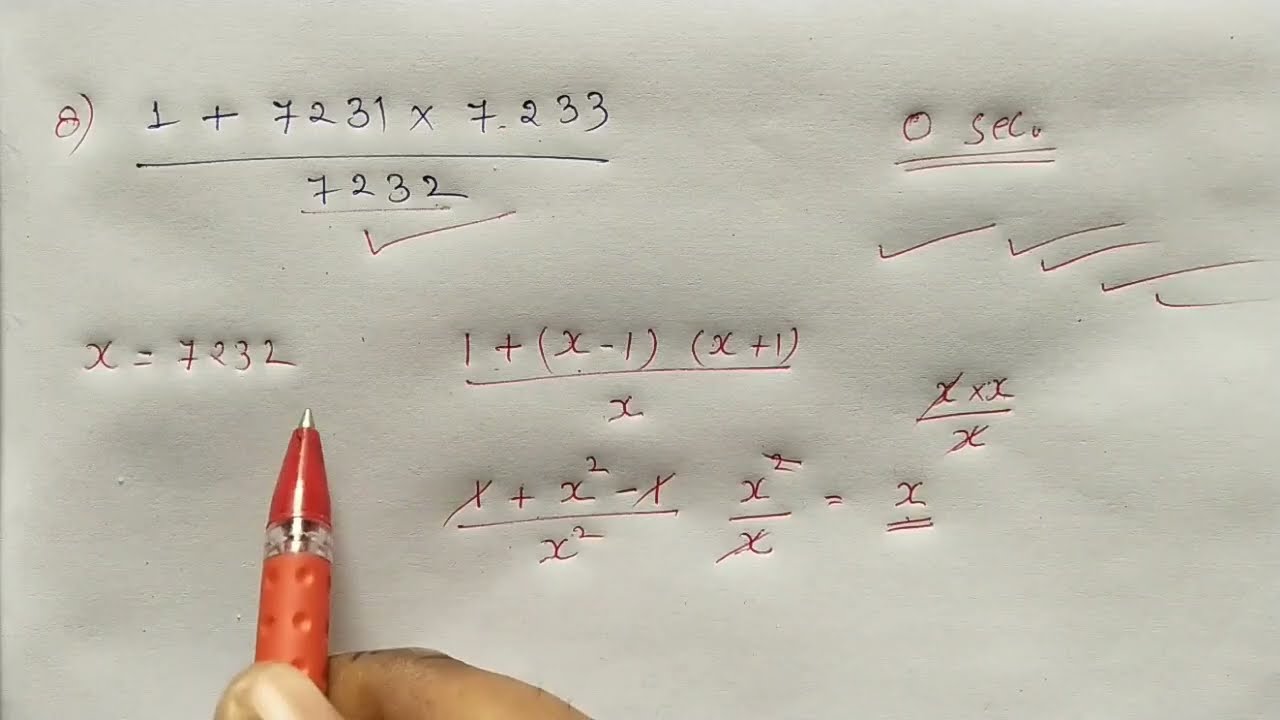 8) 1 + 7231 x 7.233
7232
0 sec.
x = 7232
1 + (x-1) (x+1)
x
x × x
x
1 + x² - 1
x²
x²
x
= x